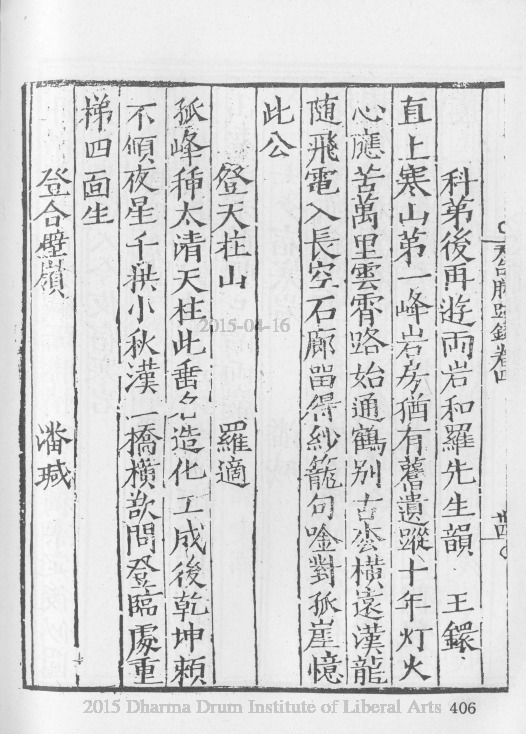 天台勝蹟錄卷四
廿四
科第後再遊兩岩和羅先生韻 王鐸
直上寒山第一峰岩房猶有舊遺蹤十年灯火
心應苦萬里雲霄路始通鶴別古松橫遠漢龍
随飛電入長空石廊畱得紗籠句唫對孤崖憶
此公
登天柱山 羅適
孤峰種太清天柱此畨名造化工成後乾坤頼
不傾夜星千拱小秋漢一橋橫欲問登臨處重
梯四面生
登合壁嶺 潘珹
2015-04-16
2015 Dharma Drum Institute of Liberal Arts 406